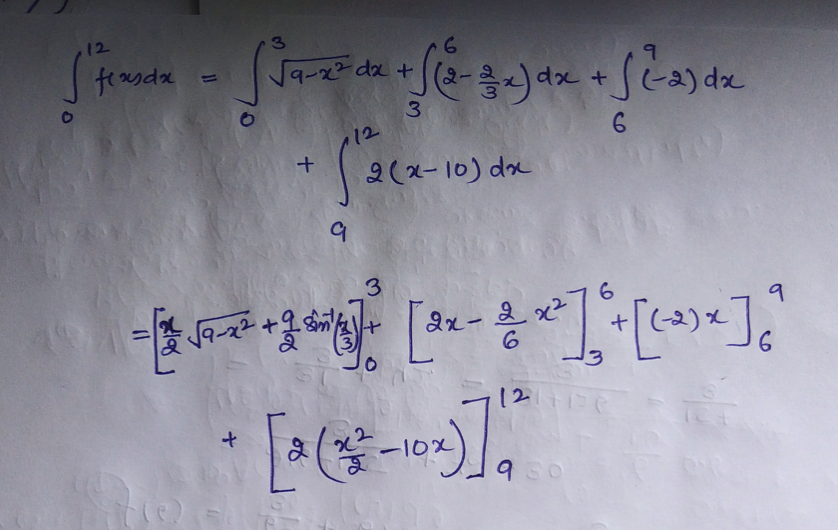 ∫₀¹² f(x)dx = ∫₀³ √(9-x²) dx + ∫₃⁶ (2 - 2/3 x) dx + ∫₆⁹ (-2) dx
+ ∫₉¹² 2(x-10) dx
= [x/2 √(9-x²) + 9/2 sin⁻¹(x/3)]₀³ + [2x - 2/6 x²]₃⁶ + [(-2)x]₆⁹
+ [2(x²/2 - 10x)]₉¹²